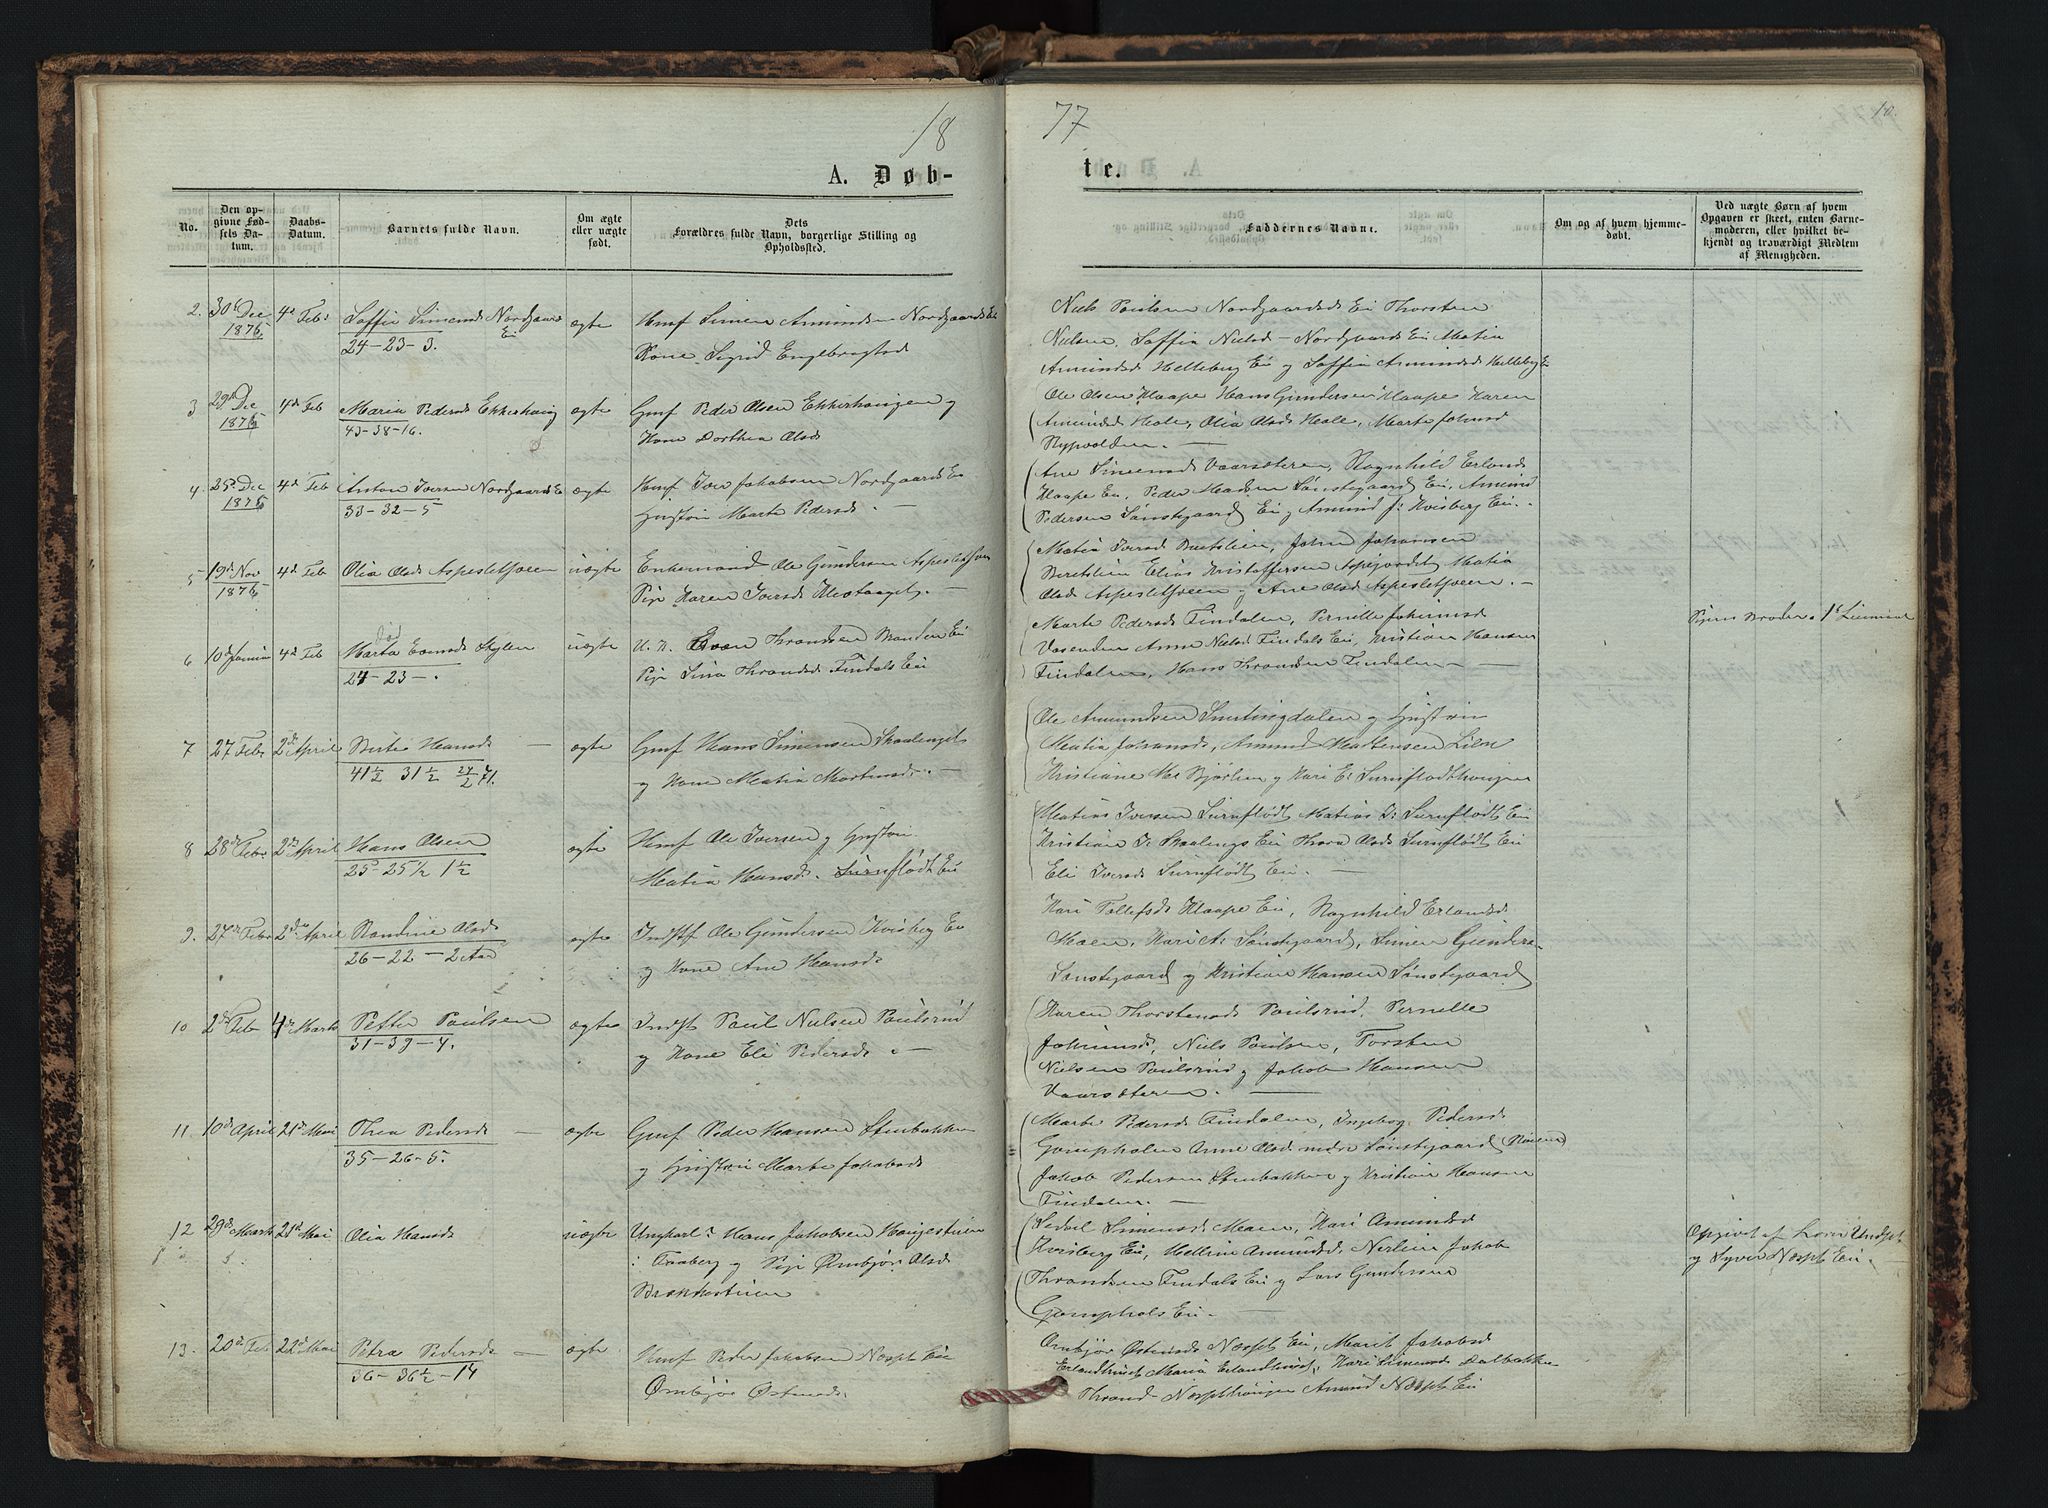 18
77
10.
A. Døb-
te.
No.
Den op-
givne Fød-
sels Da-
tum.
Daabs-
Datum.
Barnets fulde Navn.
Om ægte
eller uægte
født.
Dets
Forældres fulde Navn, borgerlige Stilling og
Opholdssted.
Faddernes Navne.
Om og af hvem hjemme-
døbt.
Ved uægte Børn af hvem
Opgaven er skeet, enten Barne-
moderen, eller hvilket be-
kjendt og troværdigt Medlem
af Menigheden.
2. 30te Dec 1876 4d Feb: Soffie Simensd Nordgaards Ei 24-23-3. ægte
Hmf Simen Amundsen Nordgaards Ei
Kone Sigrid Engebrigtsd
Niels Poulsen Nordgaards Ei Thorsten
Nielsen, Soffia Nielsd - Nordgaards Ei Matia
Amundsd Helleberg Ei og Soffia Amundsd Helleberg Ei
3 29de Dec 1876 4de Feb Maria Pedersd Ekkerhaug 43-38-16. ægte
Gmf Peder Olsen Ekkerhaugen og
Kone Dorthea Olsd
Ole Olsen Klaape Hans Gundersen Klaape Karen
Amundsd Hole, Olia Olsd Hole, Marte Johnsd
4. 25de Dec 1876 4d Feb Anton Iversen Nordgaards Ei 33-32-5 ægte
Hmf Iver Jakobsen Nordgaards Ei
Hustru Marte Pedersd. -
Ane Simensd Vaarsæteren, Ragnhild Erlandsd
Klaape Ei, Peder Madsen Sønstegaards Ei, Amund
Pedersen Sønstegaards Ei og Amund J: Kvisberg Ei.
5 19de Nov 1876 4d Feb Olia Olsd Aspesletsveen uægte
Enkemand Ole Gundersen Aspesletsveen
Pige Karen Iversd
Matia Iversd Bretslien, John Johansen
Bretslien Elias Kristoffersen Matia
Olsd Aspesletsveen og Ane Olsd Aspesletsveen. -
6 10d Januar 4d Feb død Marta Evensd 24-23-. uægte
U. N. Even Throndsen Branden Ei
Pige Sina Throndsd Findals Ei
Marte Pedersd Findalen, Pernille Johnsd
Vasenden Anne Nielsd Findals Ei, Kristian Hansen
Findalen, Hans Throndsen Findalen -
Pigens Broder.
7 27 Feb: 2d April Berte Hansd 41½ 31½ ægte
Gmf Hans Simensen
og Kone Matia Mortensd. -
Ole Amundsen og Hustru
Matia Johansd, Amund Mortensen Lien
Kristiane
8 28de Feb: 2d April Hans Olsen 25-25½ 1½ ægte
Hmf Ole Iversen og Hustru
Matia Hansd. Surnflødt Ei
Matias Iversen Surnflødt Matias I: Surnflødt Ei
Kristian I: Thora Olsd Surnflødt Ei
Eli Iversd Surnflødt Ei. -
9. 27de Feb: 2d April Randine Olsd 26-22-2 ægte
Indst Ole Gundersen Kvisberg Ei
og Kone Ane Hansd.
Kari Tollefsd Klaape Ei, Ragnhild Erlandsd
Moen, Kari A: Sønstegaard, Simen Gunders-
Sønstegaard og Kristian Hansen Sønstegaard
10 2de Feb 4de Marts Petter Poulsen 31-39-4. ægte
Indst Poul Nielsen Poulsrud
og Kone Eli Pedersd. -
Karen Thorstensd Poulsrud, Pernille
Johnsd, Niels Poulsen, Torsten
Nielsen Poulsrud og Jakob Hansen
Vaarsæteren. -
11. 10d April 21d Mai Thea Pedersd - 35-26-5. ægte
Gmf Peder Hansen Stenbakken
og Hustru Marte Jakobsd
Marte Pedersd Findalen, Ingeborg Pedersd
Gompholen Anne Olsd nedre Sønstegaard
Jakob Pedersen Stenbakken og Kristian Hansen
Findalen. -
12 29de Marts 21d Mai Olia Hansd uægte
Ungkarl: Hans Jakobsen Haugestuen
i Faaberg og Pige Ømbjør Olsd
Brækkestuen
Simensd Moen, Kari Amundsd
Kvisberg Ei, Helline Amundsd Nerlien Jakob
Throndsen Findals Ei og Lars Gundersen
Gomphols Ei. -
Opgivet af
og Syver Næsset Ei. -
13. 20de Feb 22d Mai Petra Pedersd - 36-36½-14 ægte
Hmf Peder Jakobsen Næsset Ei
Ømbjør Østensd.
Ømbjør Østensd Næsset Ei, Marit Jakobsd
Erlandhuset Maria Erlandhuset, Kari Simensd Dalbakken
Thrond Næssethaugen Amund Næsset Ei